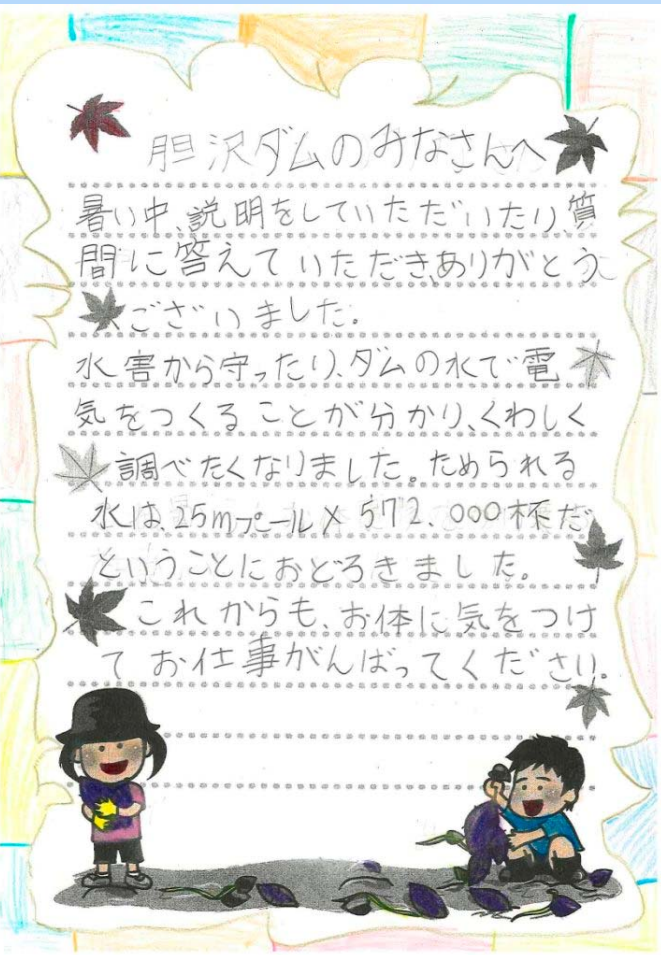 胆沢ダムのみなさんへ
暑い中、説明をしていただいたり、質
間に答えていただき、ありがとう
ございました。
水害から守ったり、ダムの水で電
気をつくることが分かり、くわしく
調べたくなりました。ためられる
水は、25mプール×572.000杯だ
ということにおどろきました。
これからも、お体に気をつけ
てお仕事がんばってください。